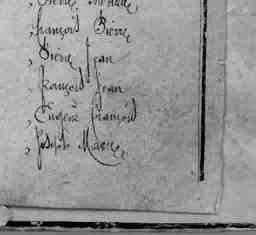 françois Pierre
Pierre Jean
françois Jean
Eugène françois
Joseph Marie